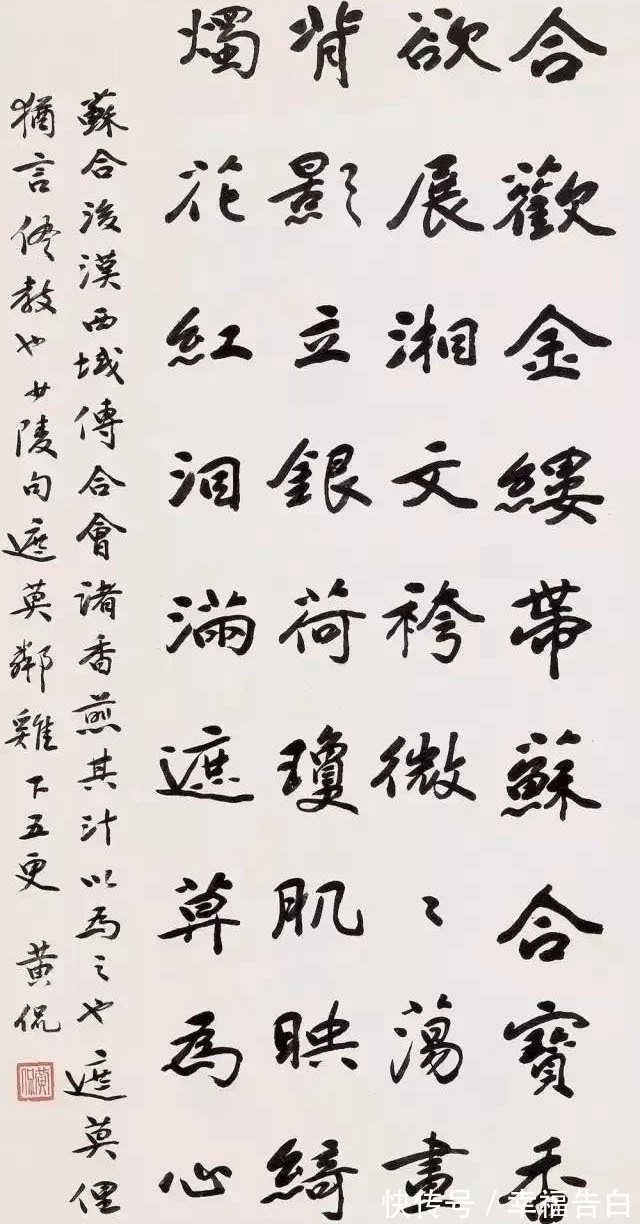 合歡金縷帶蘇合寶
欲展湘文袴微〻蕩畫
背影立銀荷瓊肌映綺
燭花紅淚滿遮莫為心
蘇合後漢西域傳合會諸香煎其汁以為之也遮莫俚
猶言侭教也少陵句遮莫鄰雞下五更 黃侃
黃侃
快传号 / 幸福告白